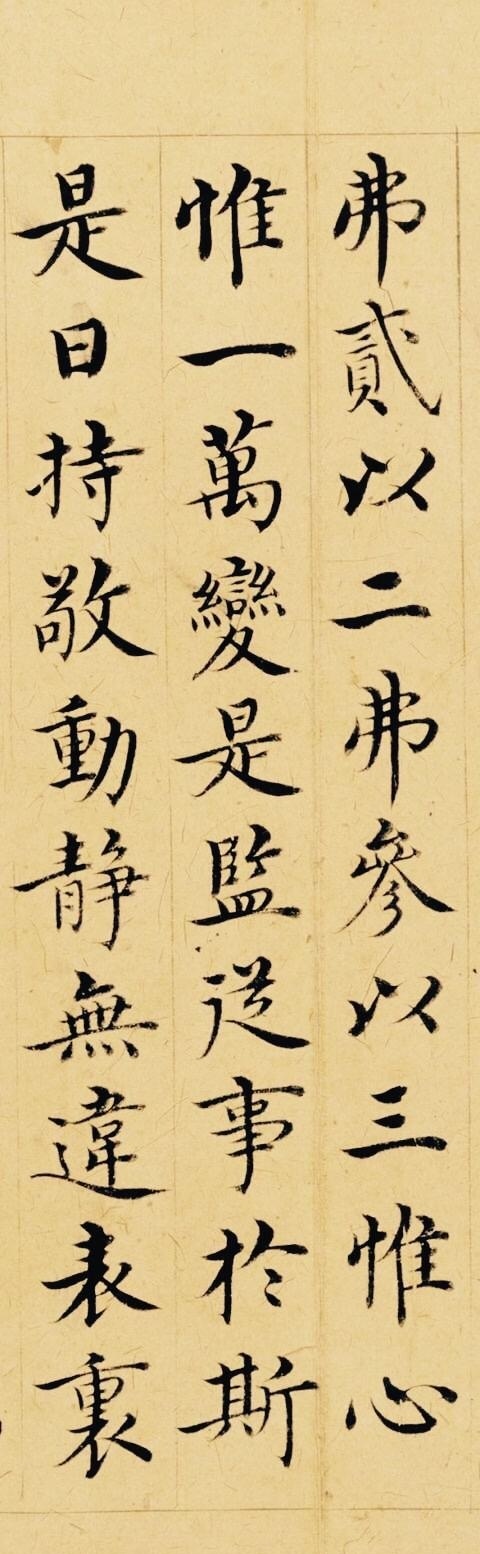 弗貳以二弗參以三惟心
惟一萬變是監従事於斯
是日持敬動静無違表裏